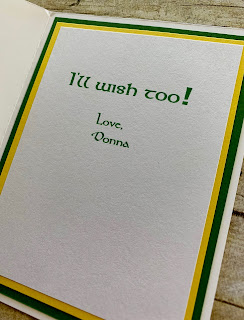 I'll wish too!
Love,
Donna